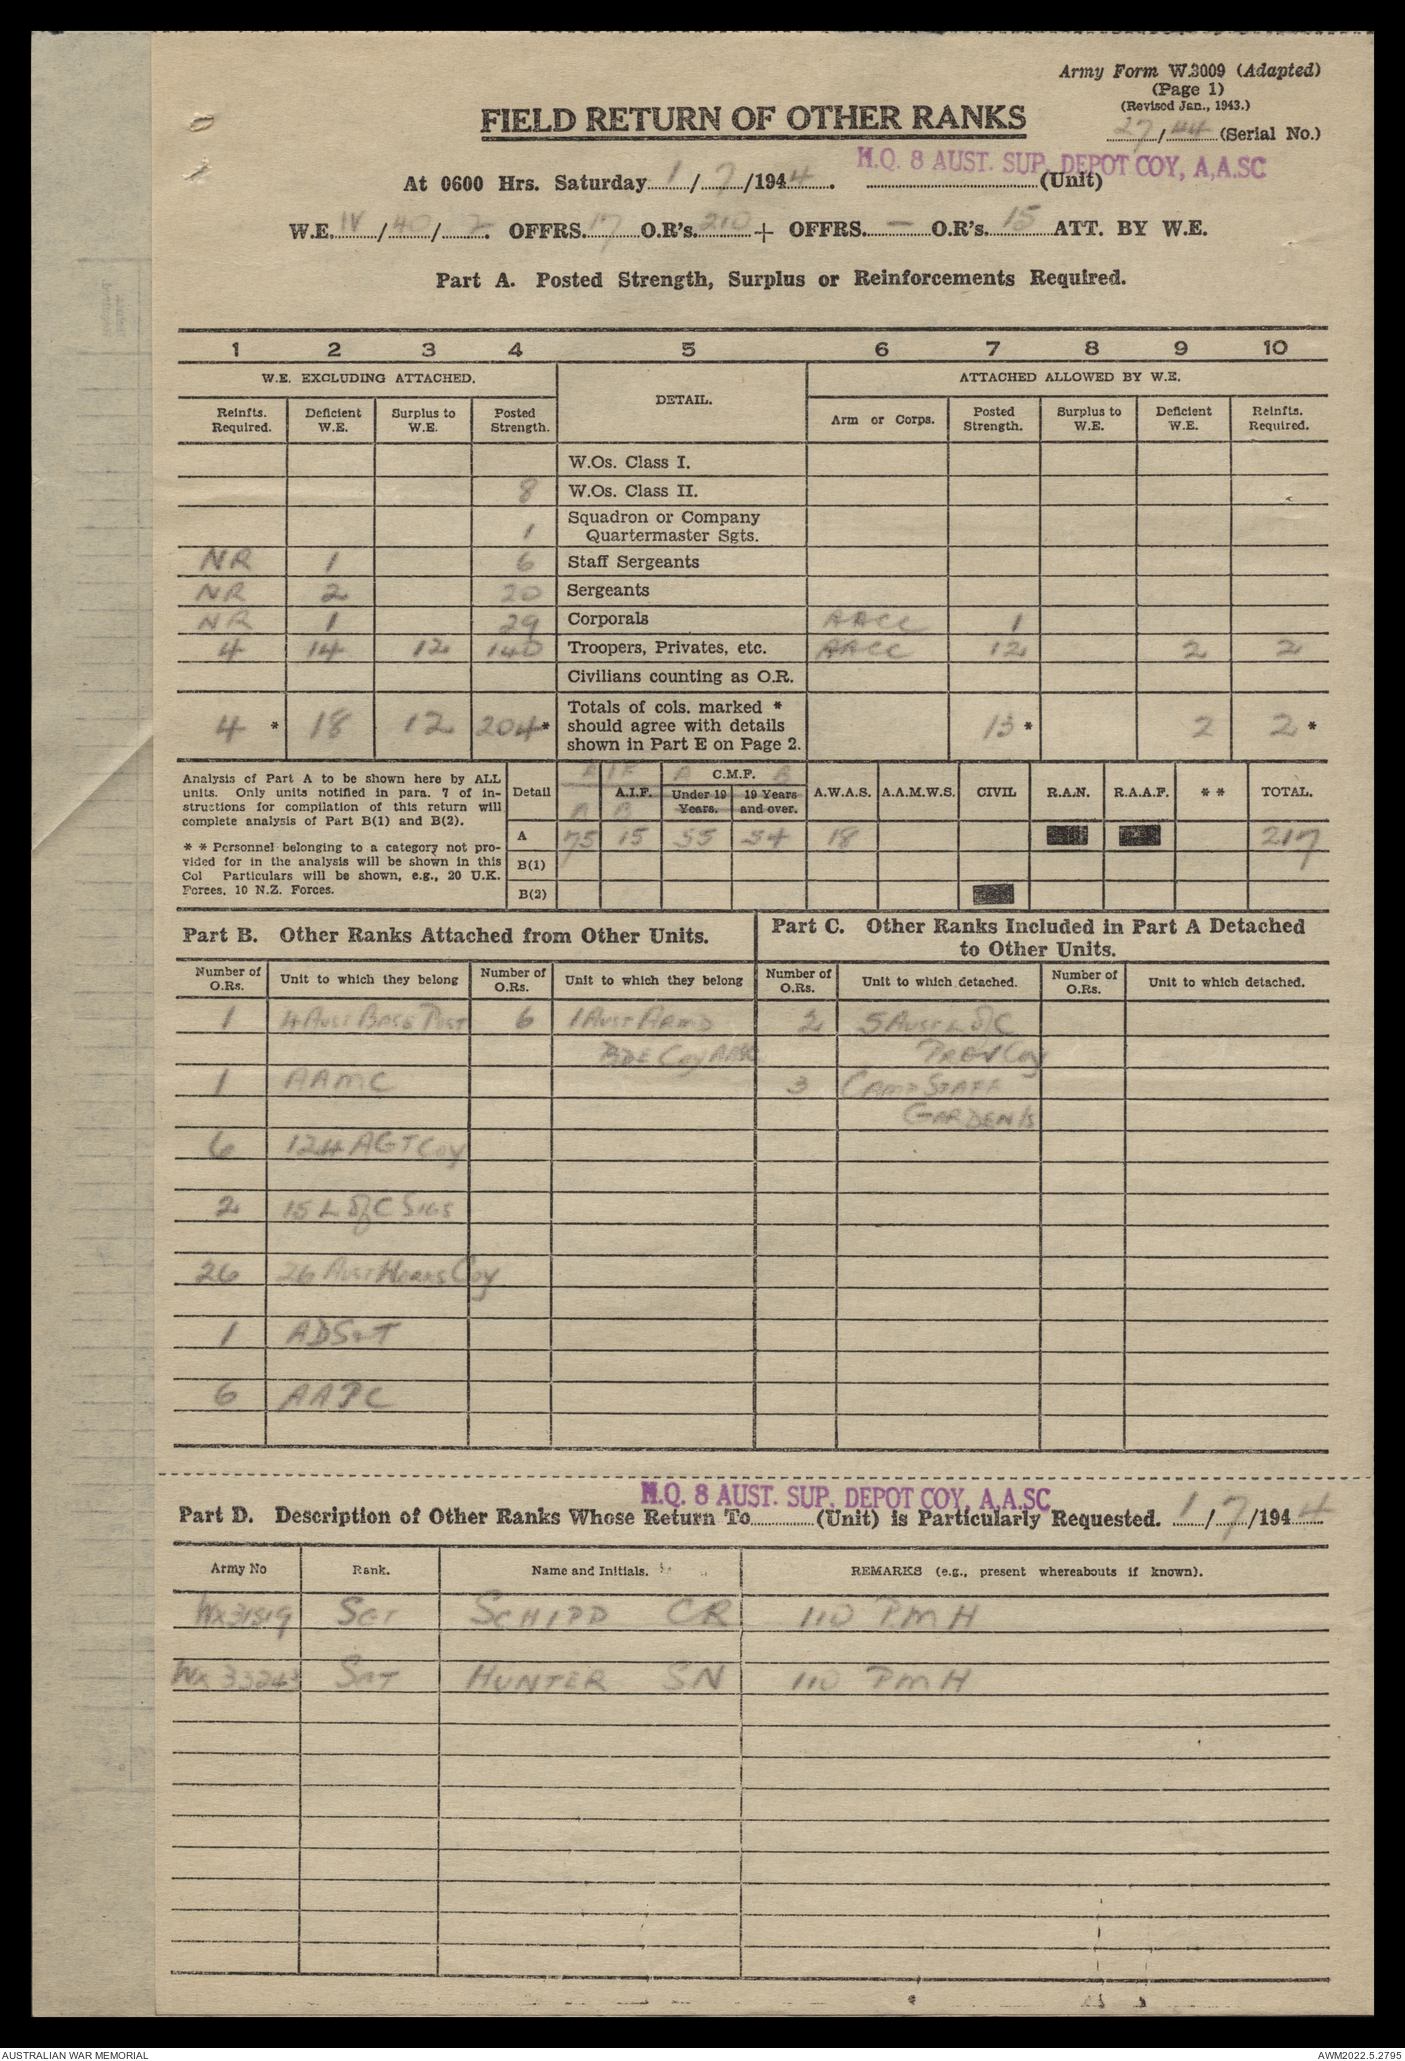 Army Form W.3009 (Adapted)
(Page 1)
(Revised Jan., 1943.)
FIELD RETURN OF OTHER RANKS
27/44 (Serial No.)
H.Q. 8 AUST. SUP. DEPOT COY, A.A.SC
At 0600 Hrs. Saturday 1/7/1944. (Unit)
W.E. IV/40/2. OFFRS. 17 O.R's. 210 + OFFRS. — O.R's. 15 ATT. BY W.E.
Part A. Posted Strength, Surplus or Reinforcements Required.
1 2 3 4 5 6 7 8 9 10
W.E. EXCLUDING ATTACHED. DETAIL. ATTACHED ALLOWED BY W.E.
Reinfts. Required. Deficient W.E. Surplus to W.E. Posted Strength. Arm or Corps. Posted Strength. Surplus to W.E. Deficient W.E. Reinfts. Required.
W.Os. Class I.
8 W.Os. Class II.
1 Squadron or Company Quartermaster Sgts.
NR 1 6 Staff Sergeants
NR 2 20 Sergeants
NR 1 29 Corporals AACC 1
4 14 12 140 Troopers, Privates, etc. AACC 12 2 2
Civilians counting as O.R.
4 * 18 12 204 * Totals of cols. marked * should agree with details shown in Part E on Page 2. 13 * 2 2 *
Analysis of Part A to be shown here by ALL
units. Only units notified in para. 7 of in-
structions for compilation of this return will
complete analysis of Part B(1) and B(2).
* * Personnel belonging to a category not pro-
vided for in the analysis will be shown in this
Col Particulars will be shown, e.g., 20 U.K.
Forces, 10 N.Z. Forces.
AIF A C.M.F. B
Detail A.I.F. Under 19 Years. 19 Years and over. A.W.A.S. A.A.M.W.S. CIVIL R.A.N. R.A.A.F. * * TOTAL.
A B
A 75 15 55 54 18 217
B(1)
B(2)
Part B. Other Ranks Attached from Other Units.
Part C. Other Ranks Included in Part A Detached
to Other Units.
Number of O.Rs. Unit to which they belong Number of O.Rs. Unit to which they belong Number of O.Rs. Unit to which detached. Number of O.Rs. Unit to which detached.
1 4 Aust Base Post 6 1 Aust Armd 2 5 Aust L of C
BDE Coy AASC Prov Coy
1 AAMC 3 Camp Staff
Garden Is
6 124 AGT Coy
2 15 L of C Sigs
26 26 Aust Works Coy
1 ADS&T
6 AAPC
H.Q. 8 AUST. SUP. DEPOT COY, A.A.SC
Part D. Description of Other Ranks Whose Return To (Unit) is Particularly Requested. 1/7/1944
Army No Rank. Name and Initials. REMARKS (e.g., present whereabouts if known).
WX31519 SGT SCHIPP CR 110 PMH
WX33243 SGT HUNTER SN 110 PMH
AUSTRALIAN WAR MEMORIAL
AWM2022.5.2795